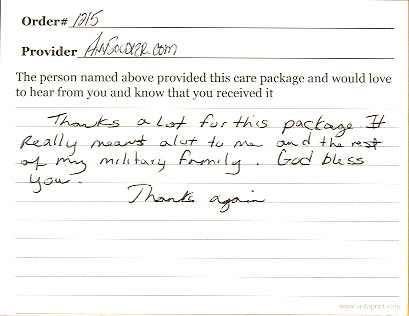 Order# 1215
Provider AnySoldier.com
The person named above provided this care package and would love
to hear from you and know that you received it
Thanks a lot for this package. It
Really means alot to me and the rest
of my military family. God bless
you.
Thanks again
www.vistaprint.com